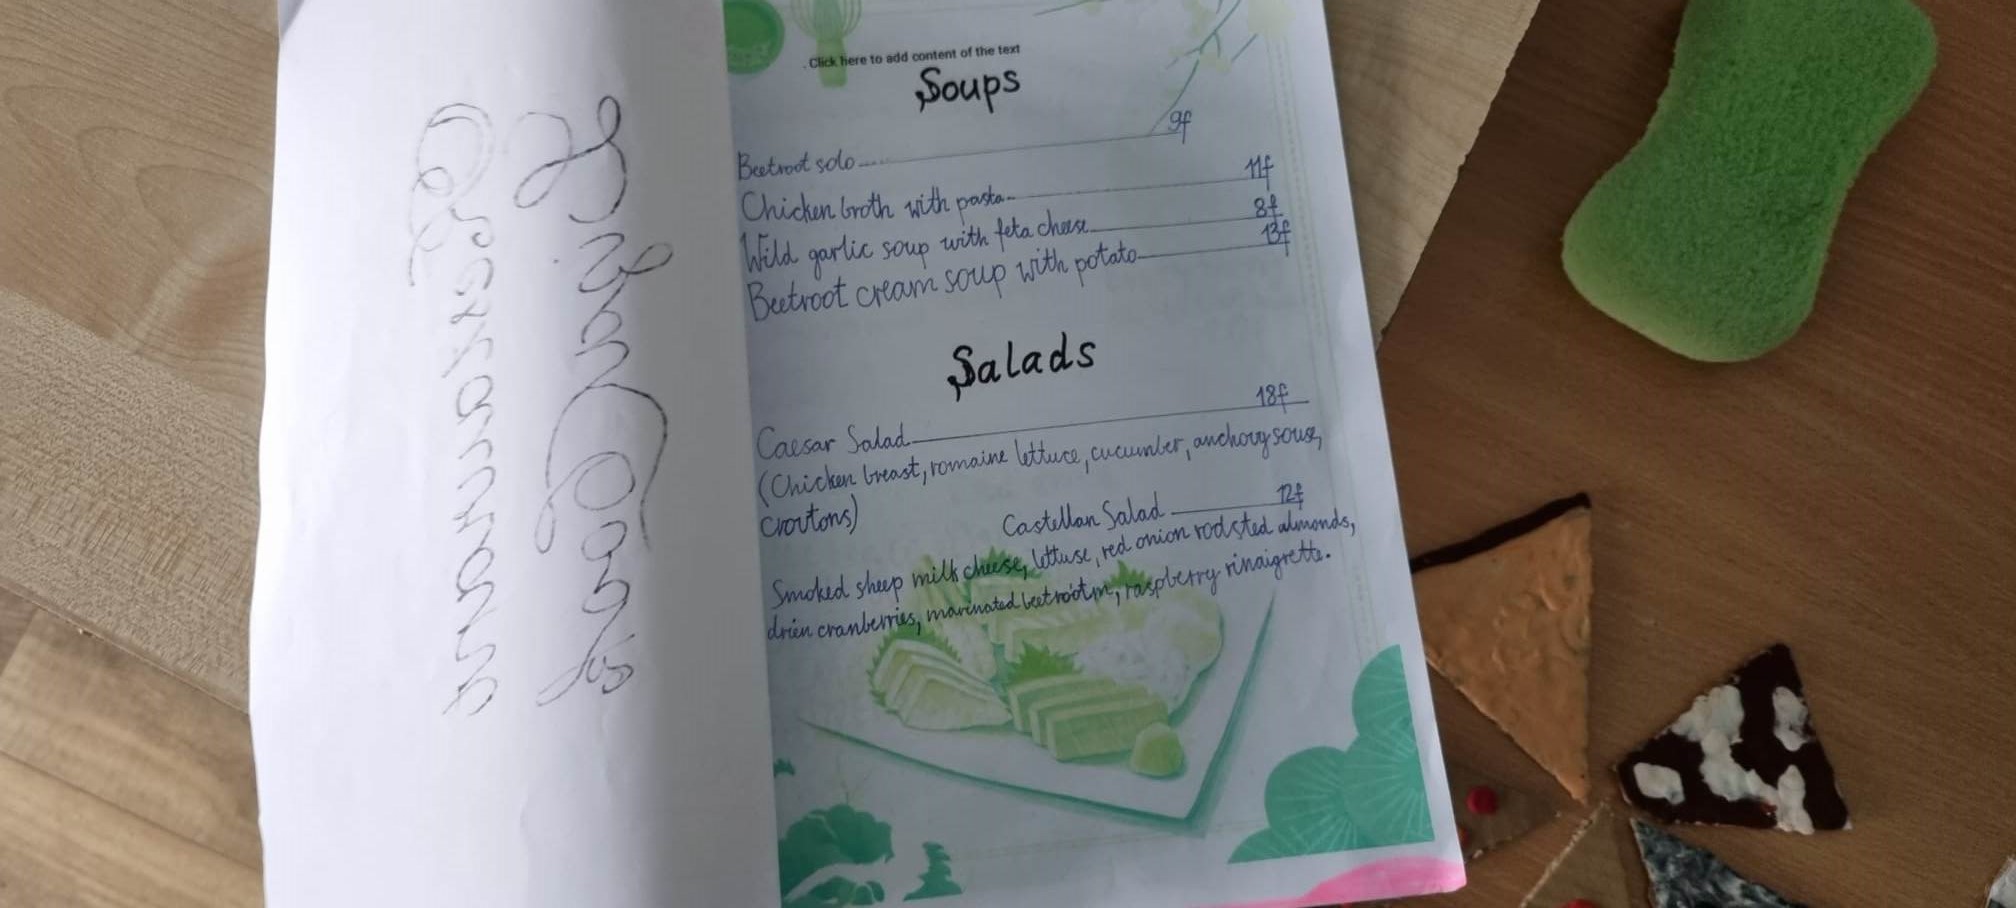 . Click here to add content of the text
Soups
Beetroot solo 9f
Chicken broth with pasta 11f
Wild garlic soup with feta cheese 8f
Beetroot cream soup with potato 13f
Salads
Caesar Salad 18f
(Chicken breast, romaine lettuce, cucumber, anchovy souse,
croutons)
Castellan Salad 12f
Smoked sheep milk cheese, lettuse, red onion rodsted almonds,
drien cranberries, marinated beetrootm, raspberry rinaigrette.